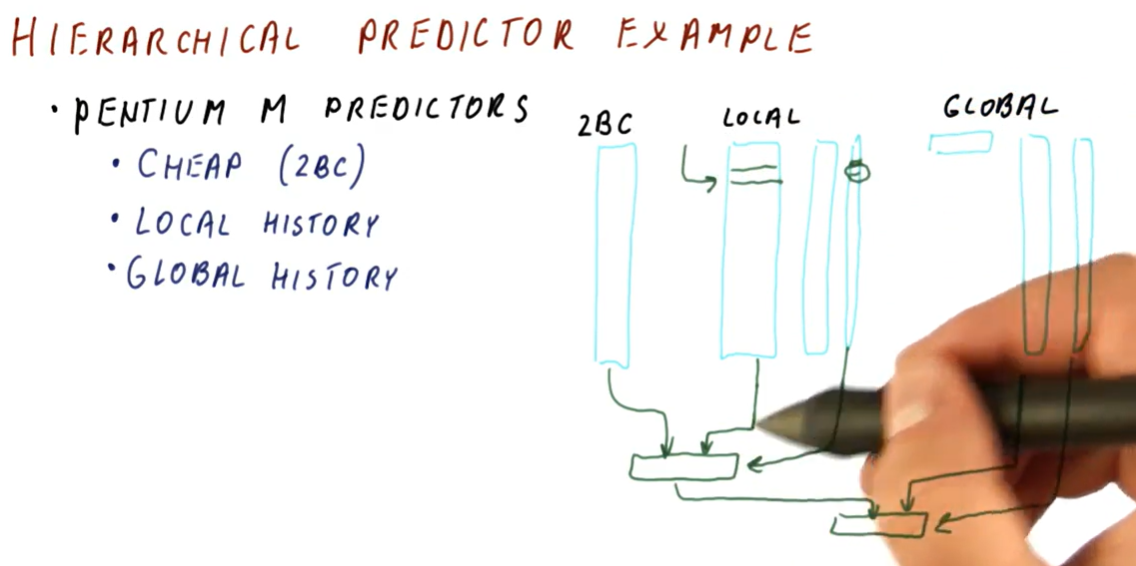 HIERARCHICAL PREDICTOR EXAMPLE
• PENTIUM M PREDICTORS
• CHEAP (2BC)
• LOCAL HISTORY
• GLOBAL HISTORY
2BC LOCAL GLOBAL